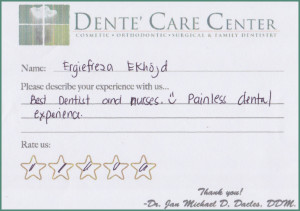 DENTE' CARE CENTER
COSMETIC • ORTHODONTIC • SURGICAL & FAMILY DENTISTRY
Name: Ergiefreza Ekhojd
Please describe your experience with us...
Best Dentist and nurses. ☺ Painless dental
experience.
Rate us:
Thank you!
-Dr. Jan Michael D. Dacles, DDM.